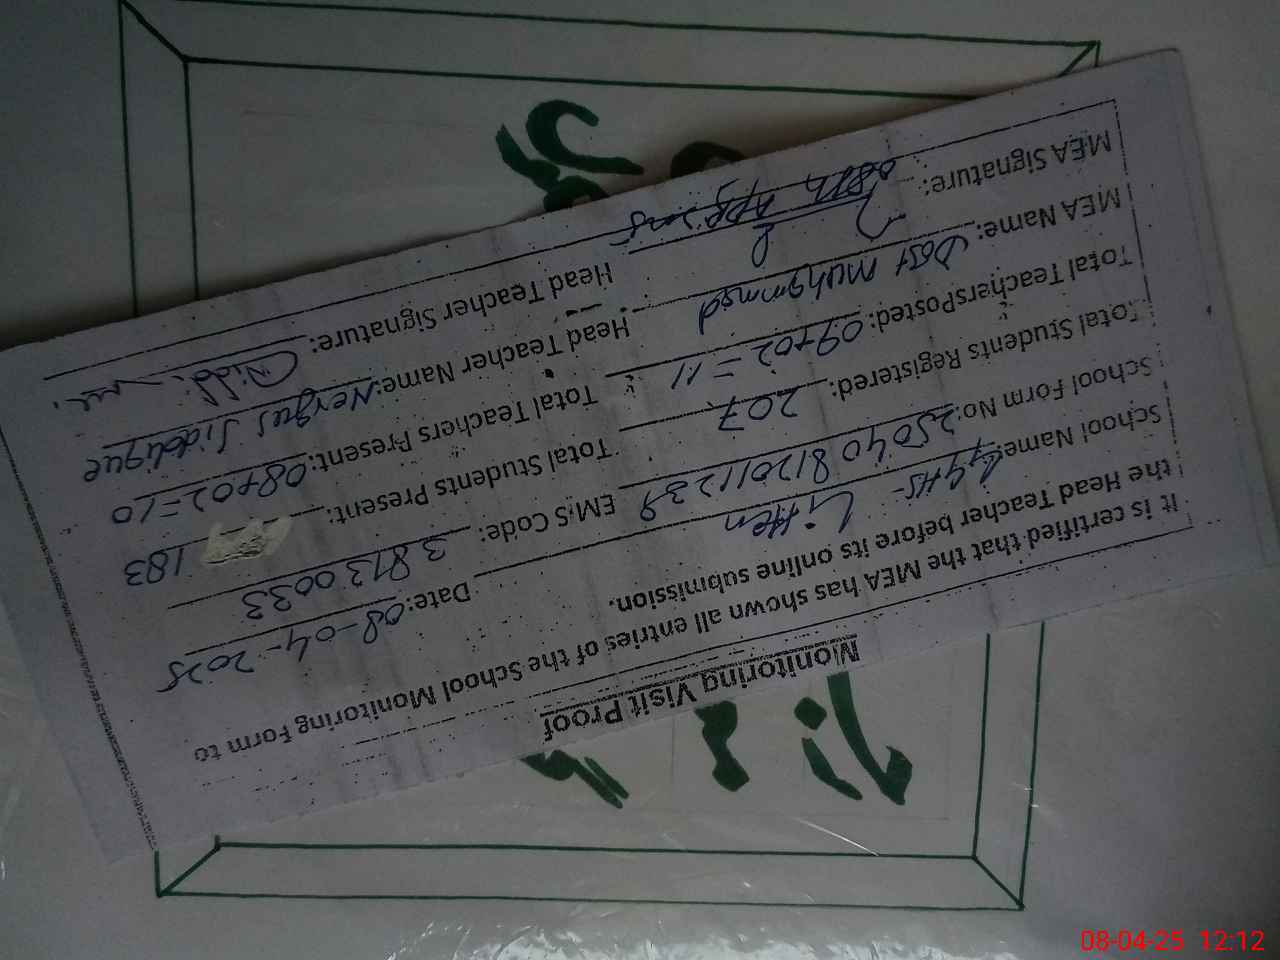 Monitoring Visit Proof
It is certified that the MEA has shown all entries of the School Monitoring Form to
the Head Teacher before its online submission.
School Name: GGHS- Litten Date: 08-04-2025
School Form No: 25040812011239 EM.S Code: 38130033
Total Students Registered: 207 Total Students Present: 183
Total TeachersPosted: 09+02=11 Total Teachers Present: 08+02=10
MEA Name: Dost muhammad Head Teacher Name: Nergus Siddique
MEA Signature: Head Teacher Signature:
08-04-25 12:12